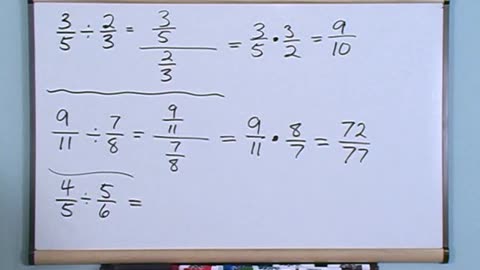 3/5 ÷ 2/3 = (3/5)/(2/3) = 3/5 • 3/2 = 9/10
9/11 ÷ 7/8 = (9/11)/(7/8) = 9/11 • 8/7 = 72/77
4/5 ÷ 5/6 =